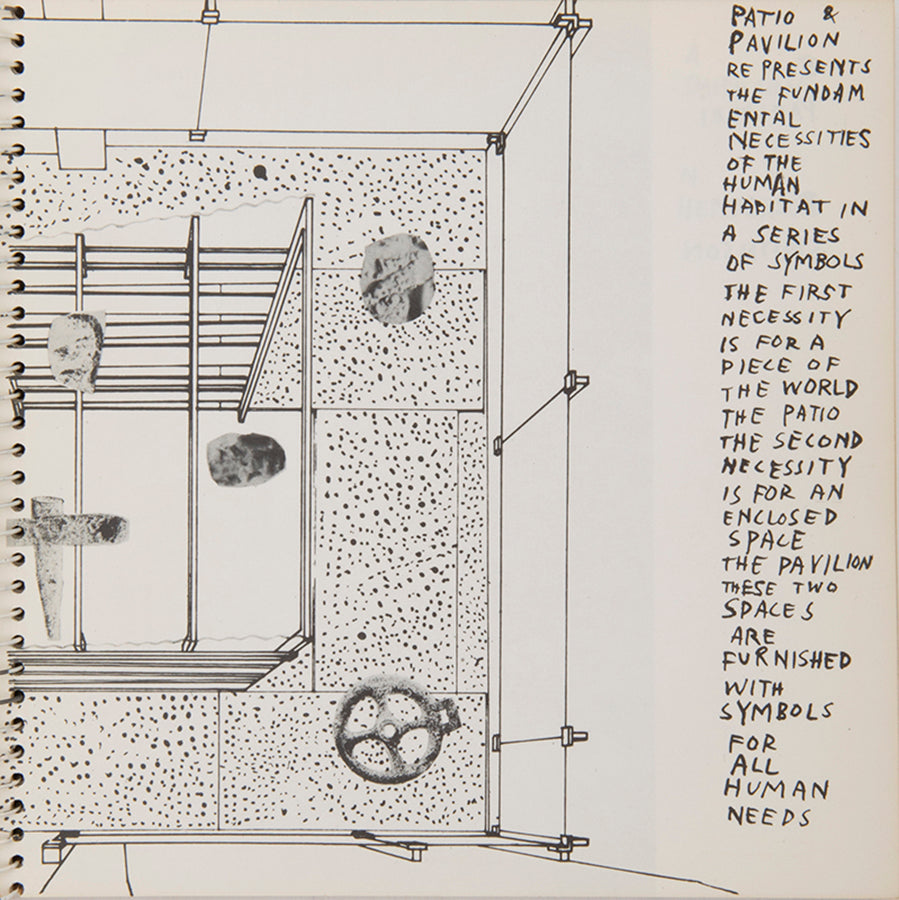 PATIO &
PAVILION
REPRESENTS
THE FUNDAM
ENTAL
NECESSITIES
OF THE
HUMAN
HABITAT IN
A SERIES
OF SYMBOLS
THE FIRST
NECESSITY
IS FOR A
PIECE OF
THE WORLD
THE PATIO
THE SECOND
NECESSITY
IS FOR AN
ENCLOSED
SPACE
THE PAVILION
THESE TWO
SPACES
ARE
FURNISHED
WITH
SYMBOLS
FOR
ALL
HUMAN
NEEDS